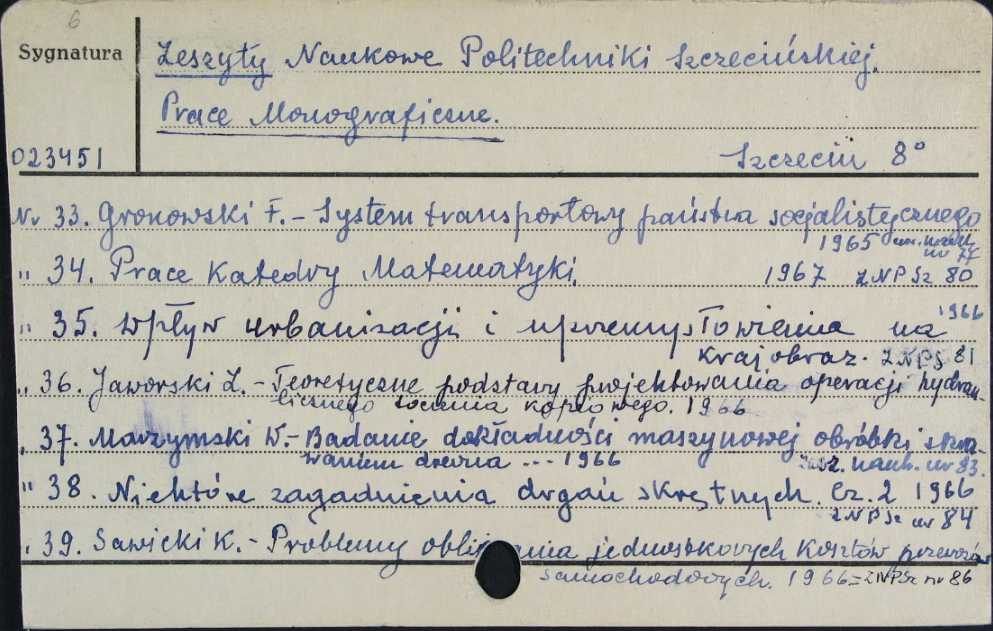 6
Sygnatura
Zeszyty Naukowe Politechniki Szczecińskiej.
Prace Monograficzne.
023451
Szczecin 8°
Nr 33. Gronowski F. - System transportowy państwa socjalistycznego
1965 nr 77
" 34. Prace Katedry Matematyki. 1967 ZNPSz 80
" 35. Wpływ urbanizacji i uprzemysłowienia na 1966
krajobraz. ZNPS 81
" 36. Jaworski Z. - Teoretyczne podstawy projektowania operacji hydrau-
licznego kopiowego. 1966
" 37. W. - Badanie dokładności maszynowej obróbki skra-
waniem drewna --- 1966 zesz. nauk. nr 83.
" 38. Niektóre zagadnienia drgań skrętnych. Cz. 2 1966
ZNPSz nr 84
" 39. Sawicki K. - Problemy jednostkowych kosztów przewozów
samochodowych. 1966 = ZNPSz nr 86